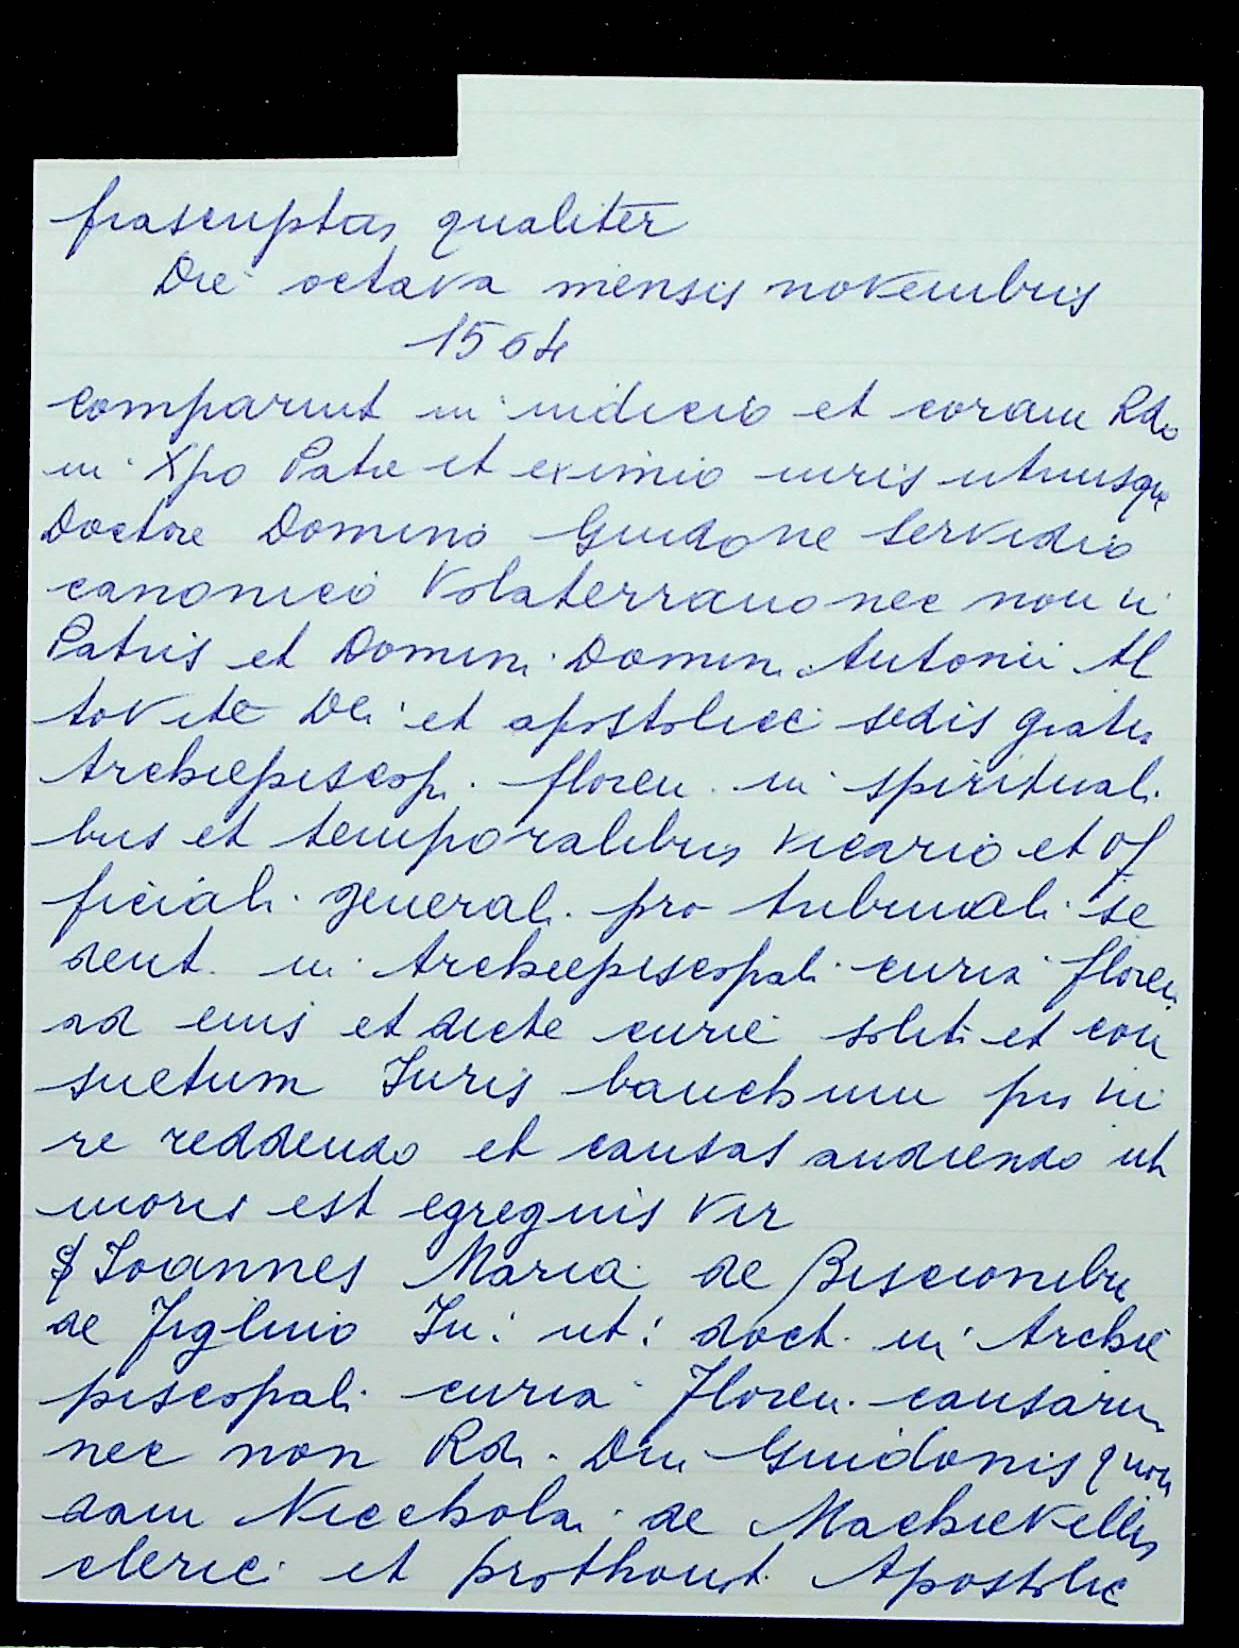 frascriptas qualiter
Die octava mensis novembris
1564
Comparuit in iudicio et coram Rdo
in Xpo Patre et eximio iuris utriusque
Doctore Domino Guidone Servidio
canonico Volaterrano nec non in
Patris et Domini Domini Antonii Al
tovite Dei et apostolice sedis gratia
Archiepiscopi floren. in spirituali
bus et temporalibus vicario et of
ficiali generali pro tribunali se
dent. in Archiepiscopali curia floren.
ad eius et dicte curie solit. et con
suetum Iuris banchum
re reddendo et causas audiendo ut
moris est egregius vir
S Ioannes Maria de Biscionibus
de Figlino Iu: ut: doct. in Archie
piscopali curia Floren. causarum
nec non Rdi. Dni Guidonis quon
dam Niccholai de Machiavellis
clerici et prothonot. Apostolic